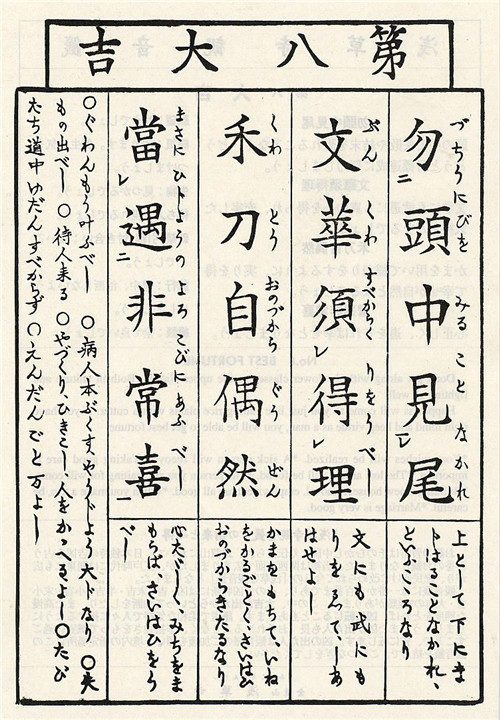 第八大吉
づちうにびを みること なかれ
勿二頭中見レ尾
上として下にま
どはることなかれ、
といふこゝろなり
ぶん くわ すべからく りをうべし
文華須レ得レ理
文にも武にも
りもえべし、あ
はせよし
くわ とう おのづから ぐう ぜん
禾刀自偶然
かまをもちて、いね
をかるごとく、さいはひ
おのづからきたるなり
まさに ひじやうの よろこびにあふ べし
當遇二非常喜
心たゞしく、みちをま
もらば、さいはひをう
べし
〇ぐわんもう叶ふべし 〇病人本ぶくす、やうじよう大トなり 〇失
もの出べし 〇待人来る 〇やづくり、ひきこし、人をかゝるよし 〇たび
たち道中ゆだんすべからず 〇えんだんごと万よし